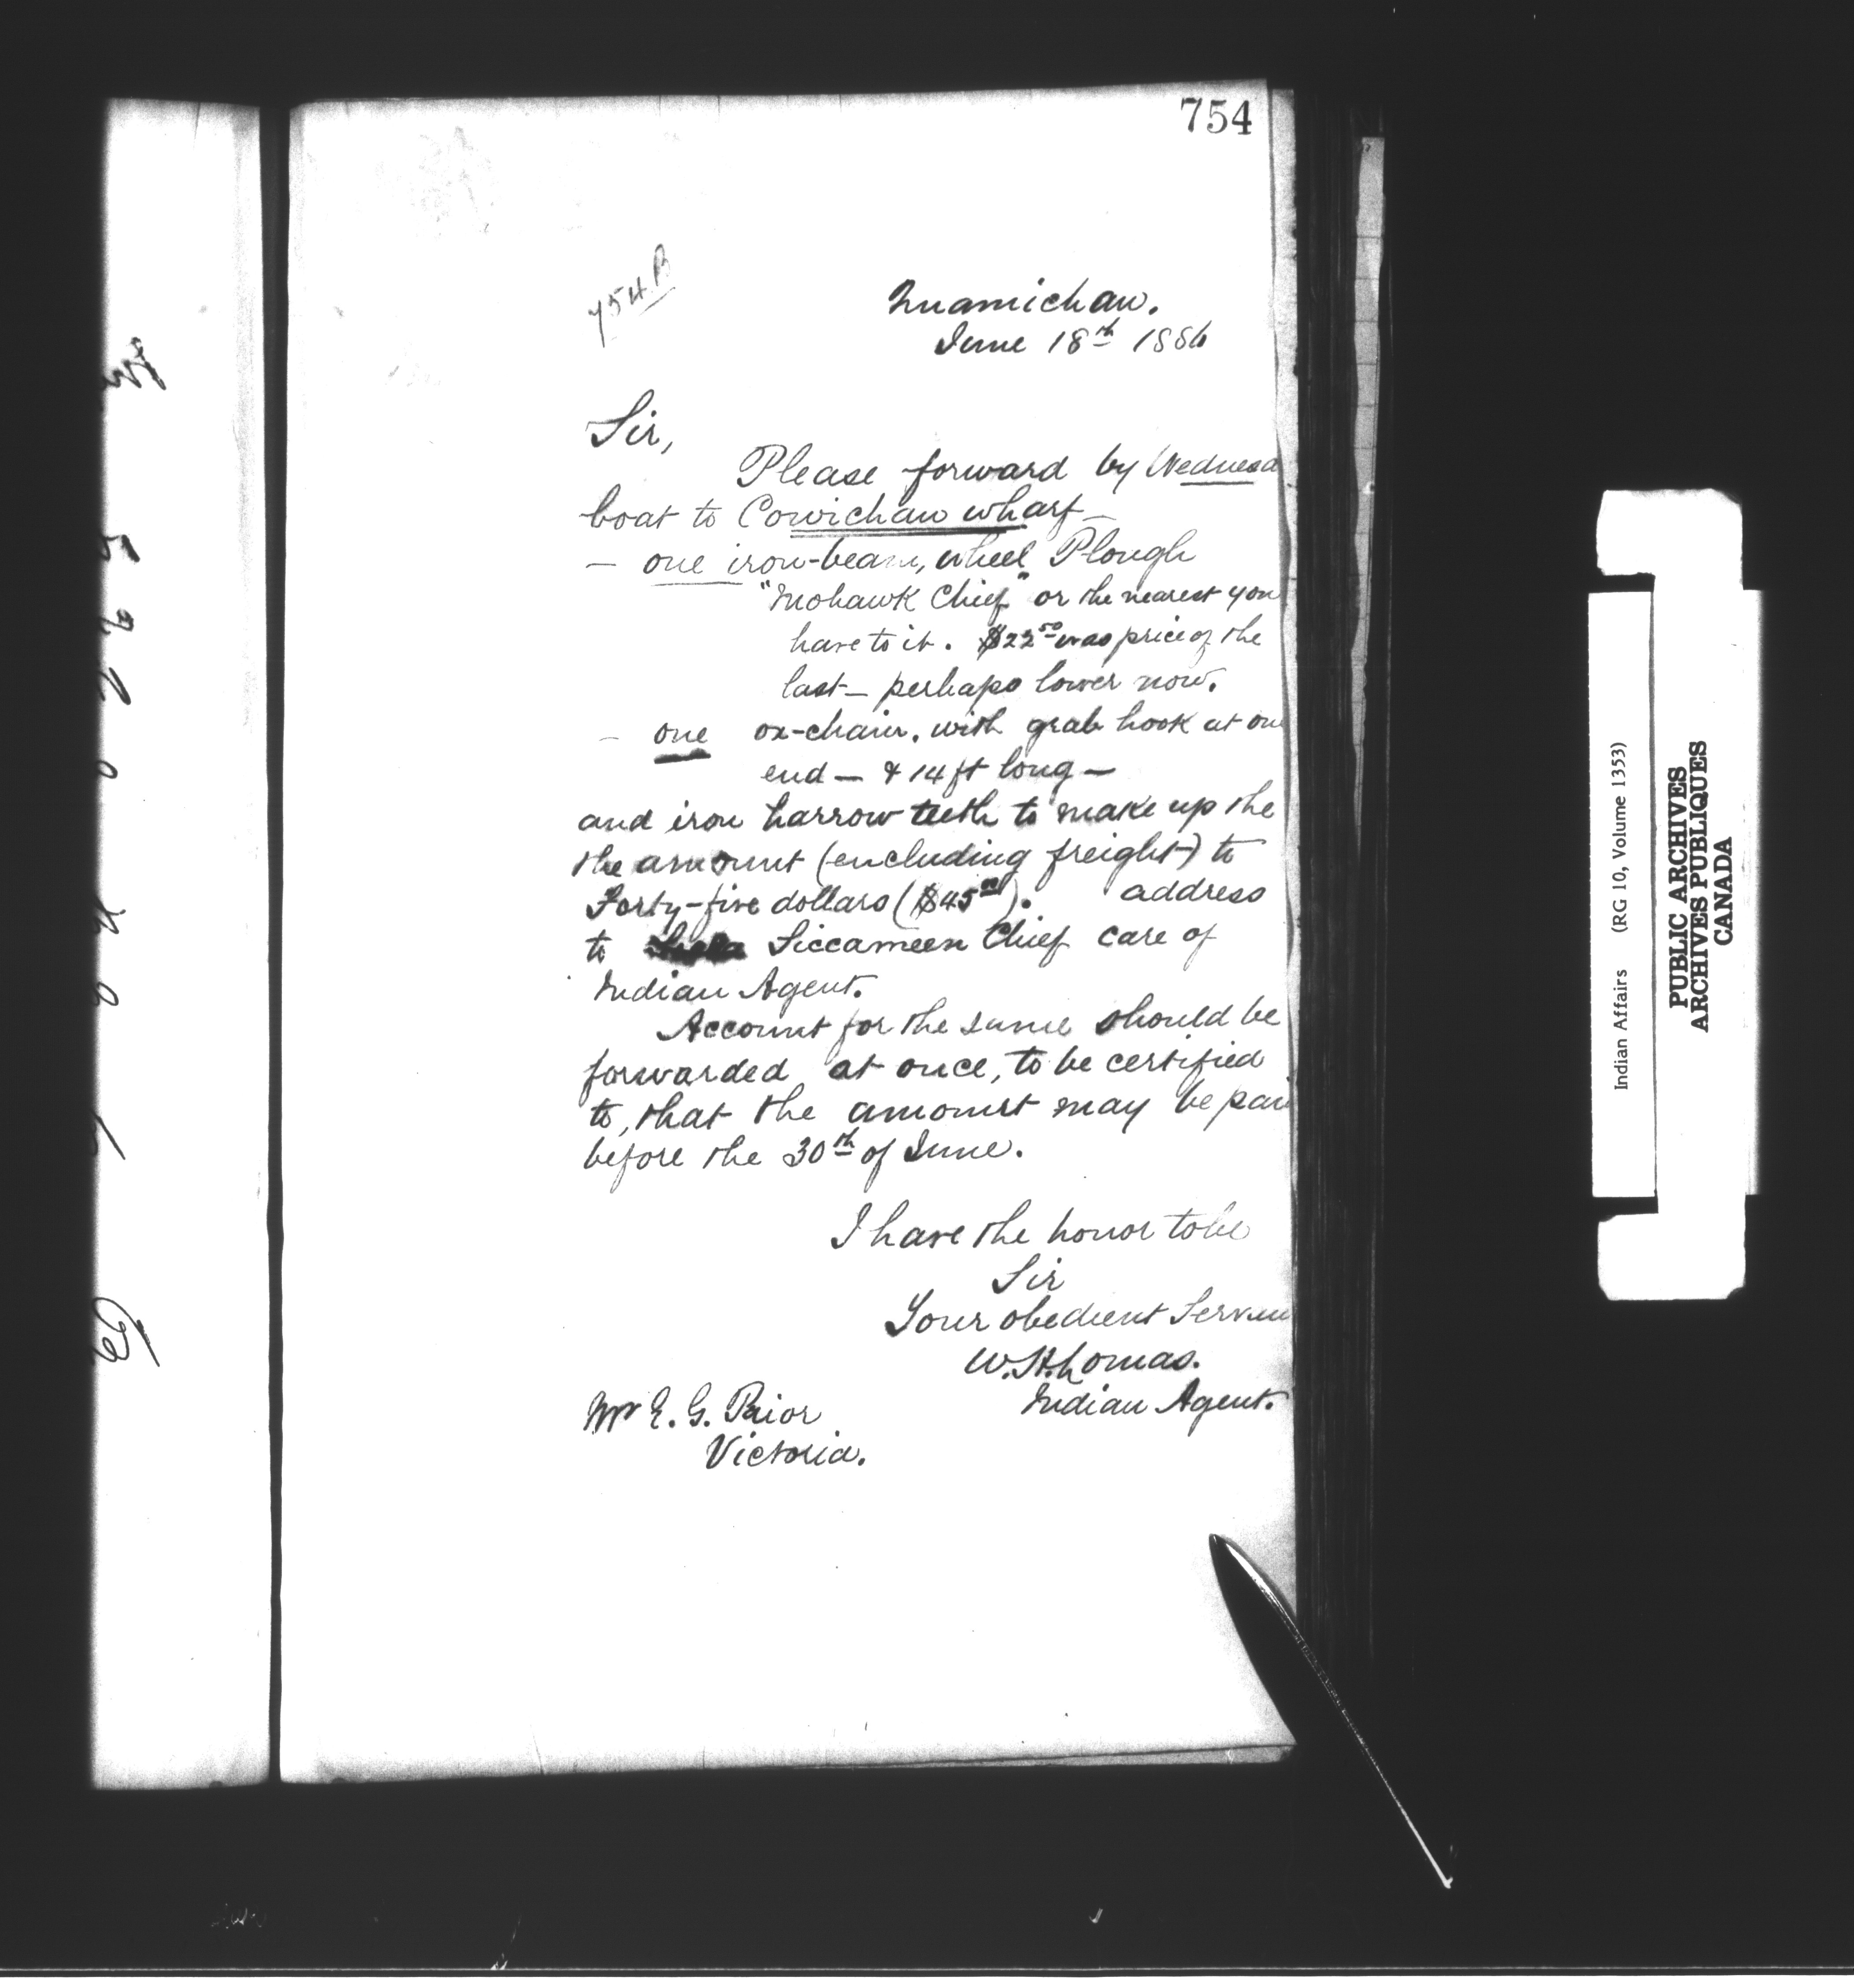 754
754 B
Quamichan.
June 18th 1886
Sir,
Please forward by Wednesd
boat to Cowichan wharf —
— one iron-beam, wheel Plough
"Mohawk Chief" or the nearest you
have to it. $22 50 was price of the
last — perhaps lower now.
— one ox-chain, with grab hook at one
end — & 14 ft long —
and iron harrow teeth to make up the
the amount (encluding freight) to
Forty-five dollars ($45 00). address
to Siccameen Chief care of
Indian Agent.
Account for the same should be
forwarded at once, to be certified
to, that the amount may be pai
before the 30th of June.
I have the honor to be
Sir
Your obedient Servan
W. H. Lomas.
Indian Agent.
Mr E. G. Prior
Victoria.
Indian Affairs (RG 10, Volume 1353)
PUBLIC ARCHIVES
ARCHIVES PUBLIQUES
CANADA